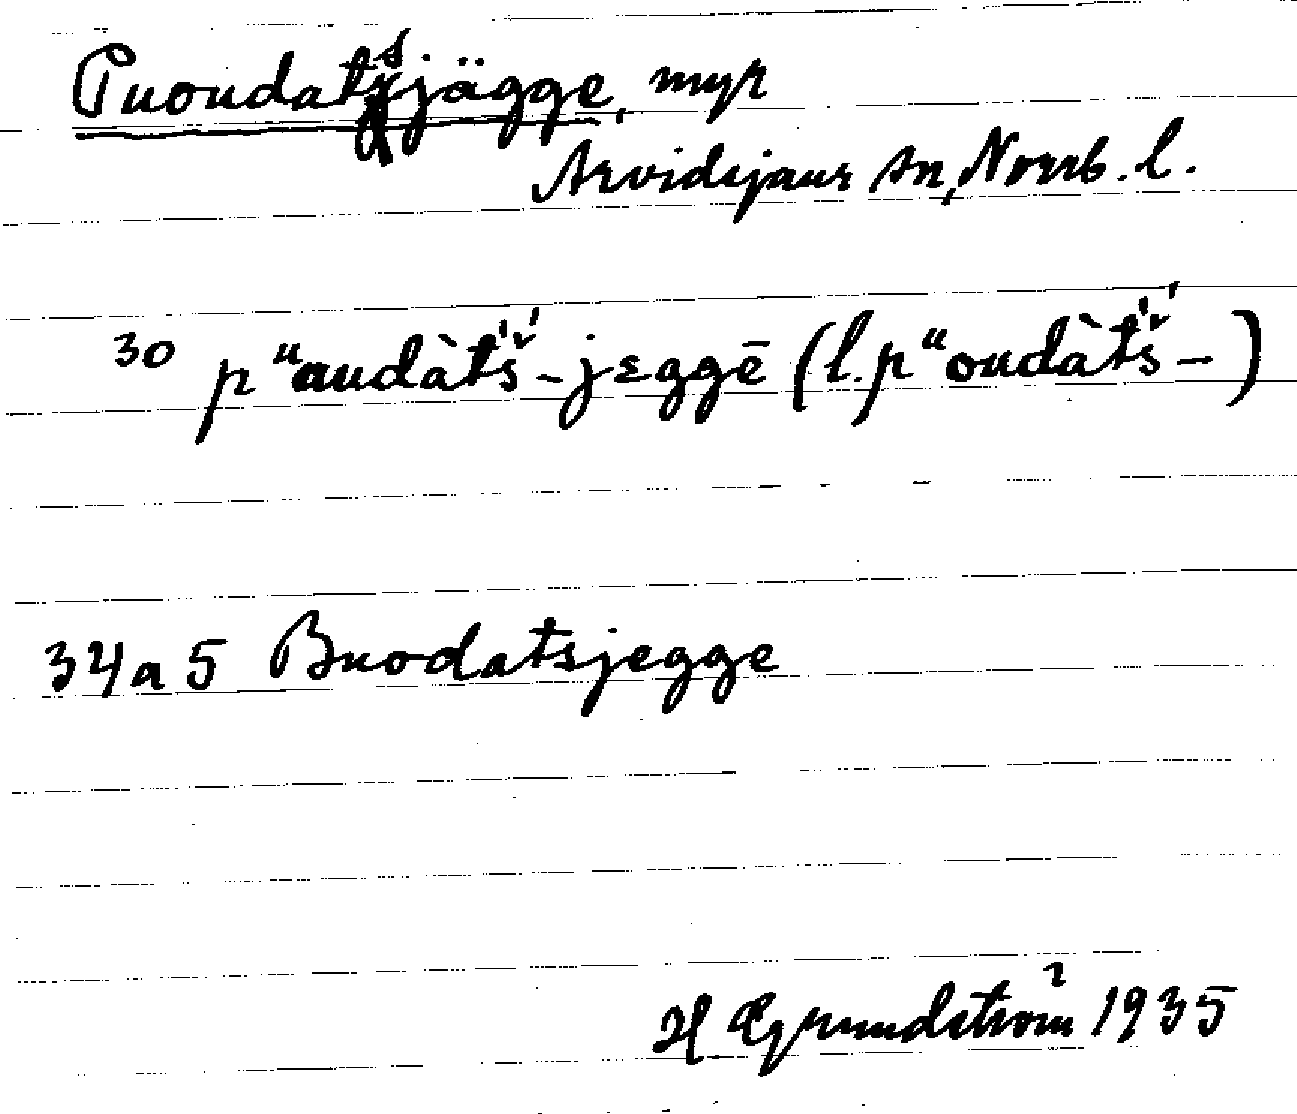 Puoudatsjägge, myr
Arvidsjaur sn, Norrb. l.
30 pᵘaudàt́š́-jeggē (l. pᵘoudàt́š́-)
34a5 Buodatsjegge
H Grundström 1935